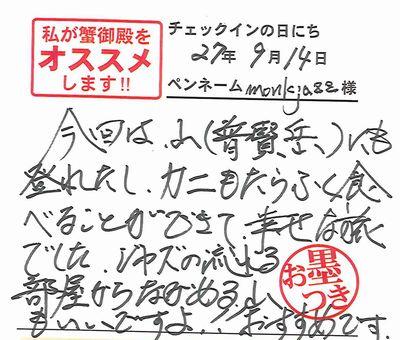 私が蟹御殿を
オススメ
します!!
チェックインの日にち
27年 9月14日
ペンネーム monkjazz 様
今回は、山(普賢岳)にも
登れたし、カニもたらふく食
べることができて幸せな旅
でした。ジャズの流れる
部屋からながめる山
もいいですよ!! おすすめです。
お墨つき